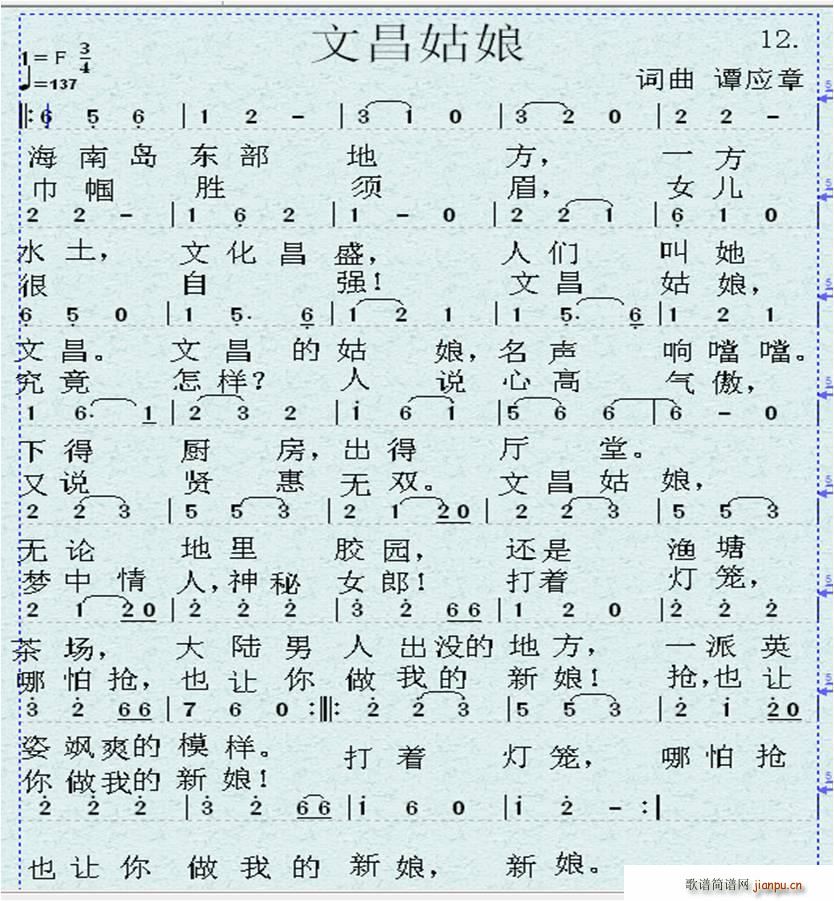 文昌姑娘
12.
1=F 3/4
♩=137
词曲 谭应章
‖: 6̣ 5̣ 6̣ | 1 2 - | 3 1 0 | 3 2 0 | 2 2 -
海南岛 东部 地 方， 一方
巾帼 胜 须 眉， 女儿
2 2 - | 1 6̣ 2 | 1 - 0 | 2 2 1 | 6̣ 1 0
水土， 文化昌盛， 人们 叫她
很 自 强！ 文昌 姑娘，
6̣ 5̣ 0 | 1 5̣· 6̣ | 1 2 1 | 1 5̣· 6̣ | 1 2 1
文昌。 文昌 的姑 娘，名声 响噹噹。
究竟 怎样？ 人 说心高 气傲，
1 6̣· 1 | 2 3 2 | i 6 i | 5 6 6 | 6 - 0
下得 厨 房，出得 厅 堂。
又说 贤 惠 无双。 文昌姑娘，
2 2 3 | 5 5 3 | 2 1 20 | 2 2 3 | 5 5 3
无论 地里 胶园， 还是 渔塘
梦中情 人，神秘 女郎！ 打着 灯笼，
2 1 20 | 2̇ 2̇ 2̇ | 3̇ 2̇ 66 | 1 2 0 | 2̇ 2̇ 2̇
茶场， 大陆男 人出没的 地方， 一派英
哪怕抢，也让你 做我的 新娘！ 抢，也让
3̇ 2̇ 66 | 7 6 0 :‖: 2̇ 2̇ 3 | 5 5 3 | 2̇ i 2̇0
姿飒爽的 模样。 打着 灯笼， 哪怕抢
你做我的 新娘！
2̇ 2̇ 2̇ | 3̇ 2̇ 66 | i 6 0 | i 2̇ - :|
也让你 做我的 新娘， 新娘。
歌谱简谱网 jianpu.cn